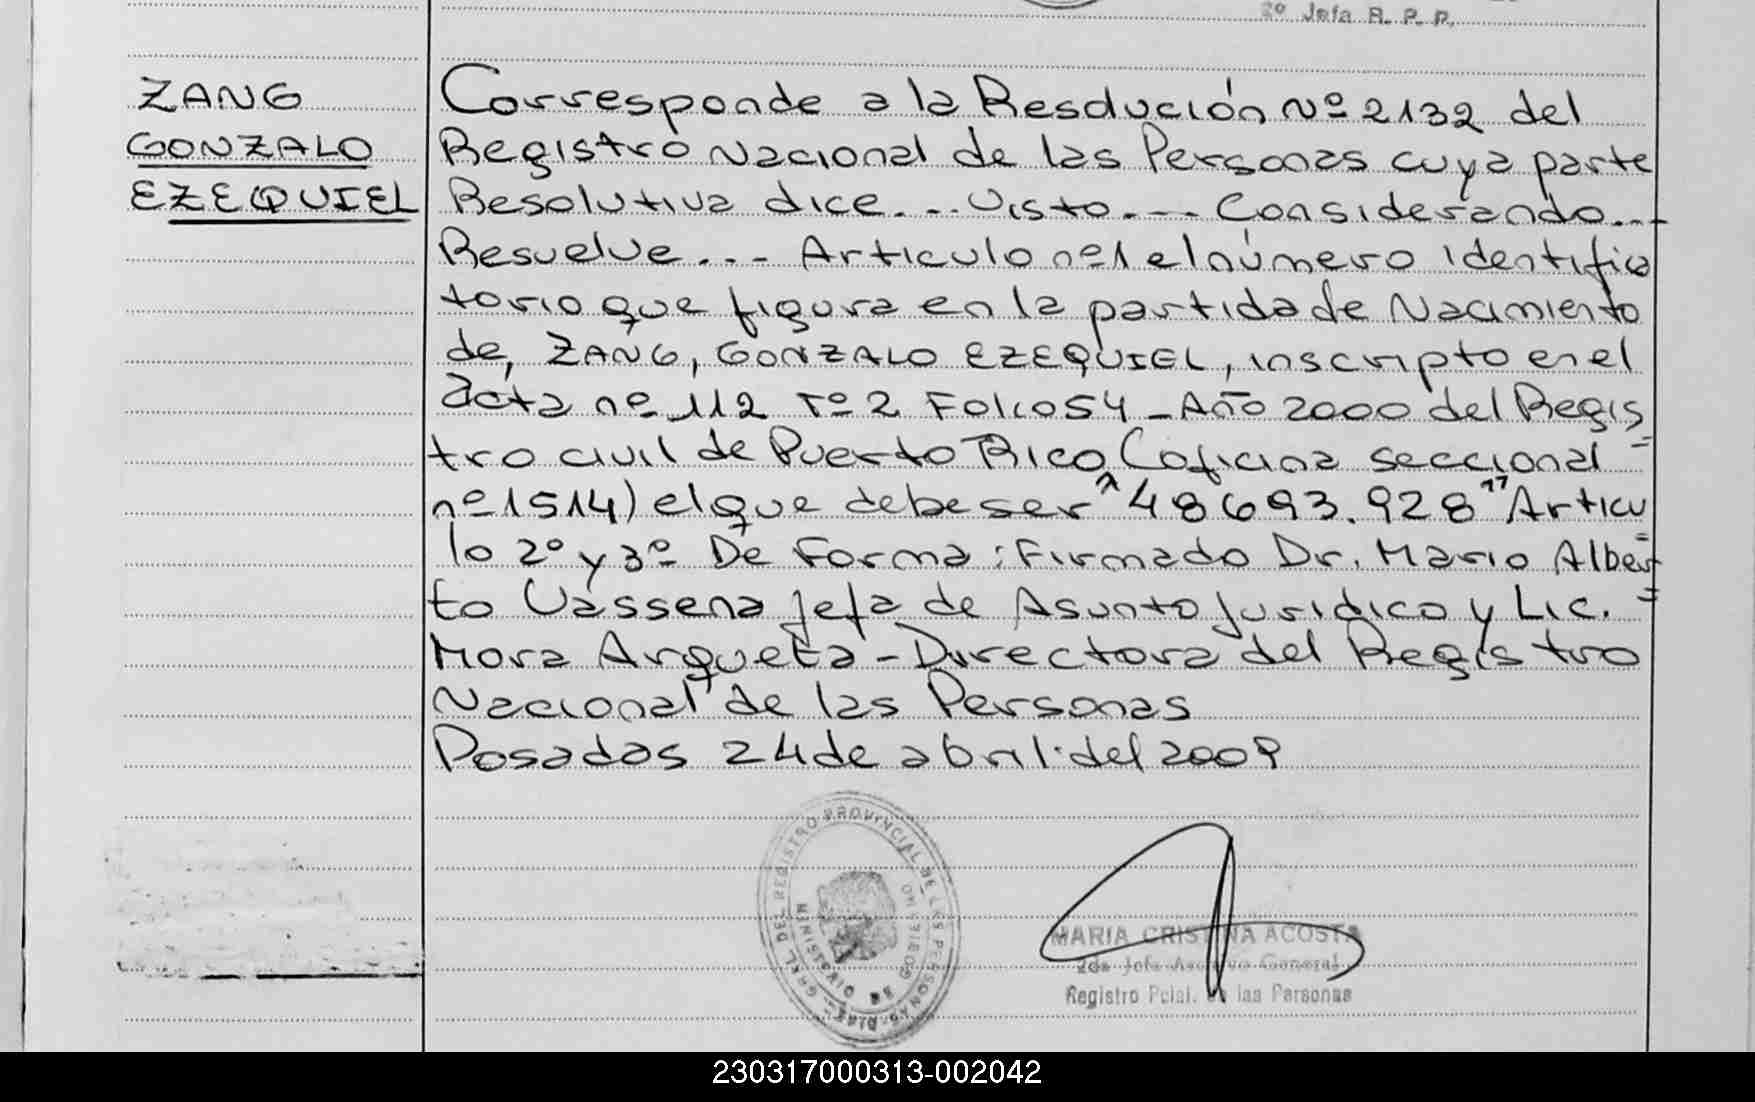 2º Jefa R. P. P.
ZANG
GONZALO
EZEQUIEL
Corresponde a la Resolución Nº 2132 del
Registro Nacional de las Personas cuya parte
Resolutiva dice... Visto... Considerando...
Resuelve... Articulo nº1 el número identifica
torio que figura en la partida de Nacimiento
de, ZANG, GONZALO EZEQUIEL, inscripto en el
acta nº 112 Tº 2 Folio 54 - Año 2000 del Regis
tro civil de Puerto Rico (oficina seccional =
nº 1514) el que debe ser "48693.928" Articu
lo 2º y 3º De Forma: Firmado Dr. Mario Alber
to Vassena jefa de Asunto juridico y Lic. =
Mora Arqueta - Directora del Registro
Nacional de las Personas
Posadas 24 de abril del 2009
GRAL DEL REGISTRO PROVINCIAL DE LAS PERSONAS
MINISTERIO DE GOBIERNO
MARIA CRISTINA ACOSTA
2da Jefa Archivo General
Registro Pcial. de las Personas
230317000313-002042